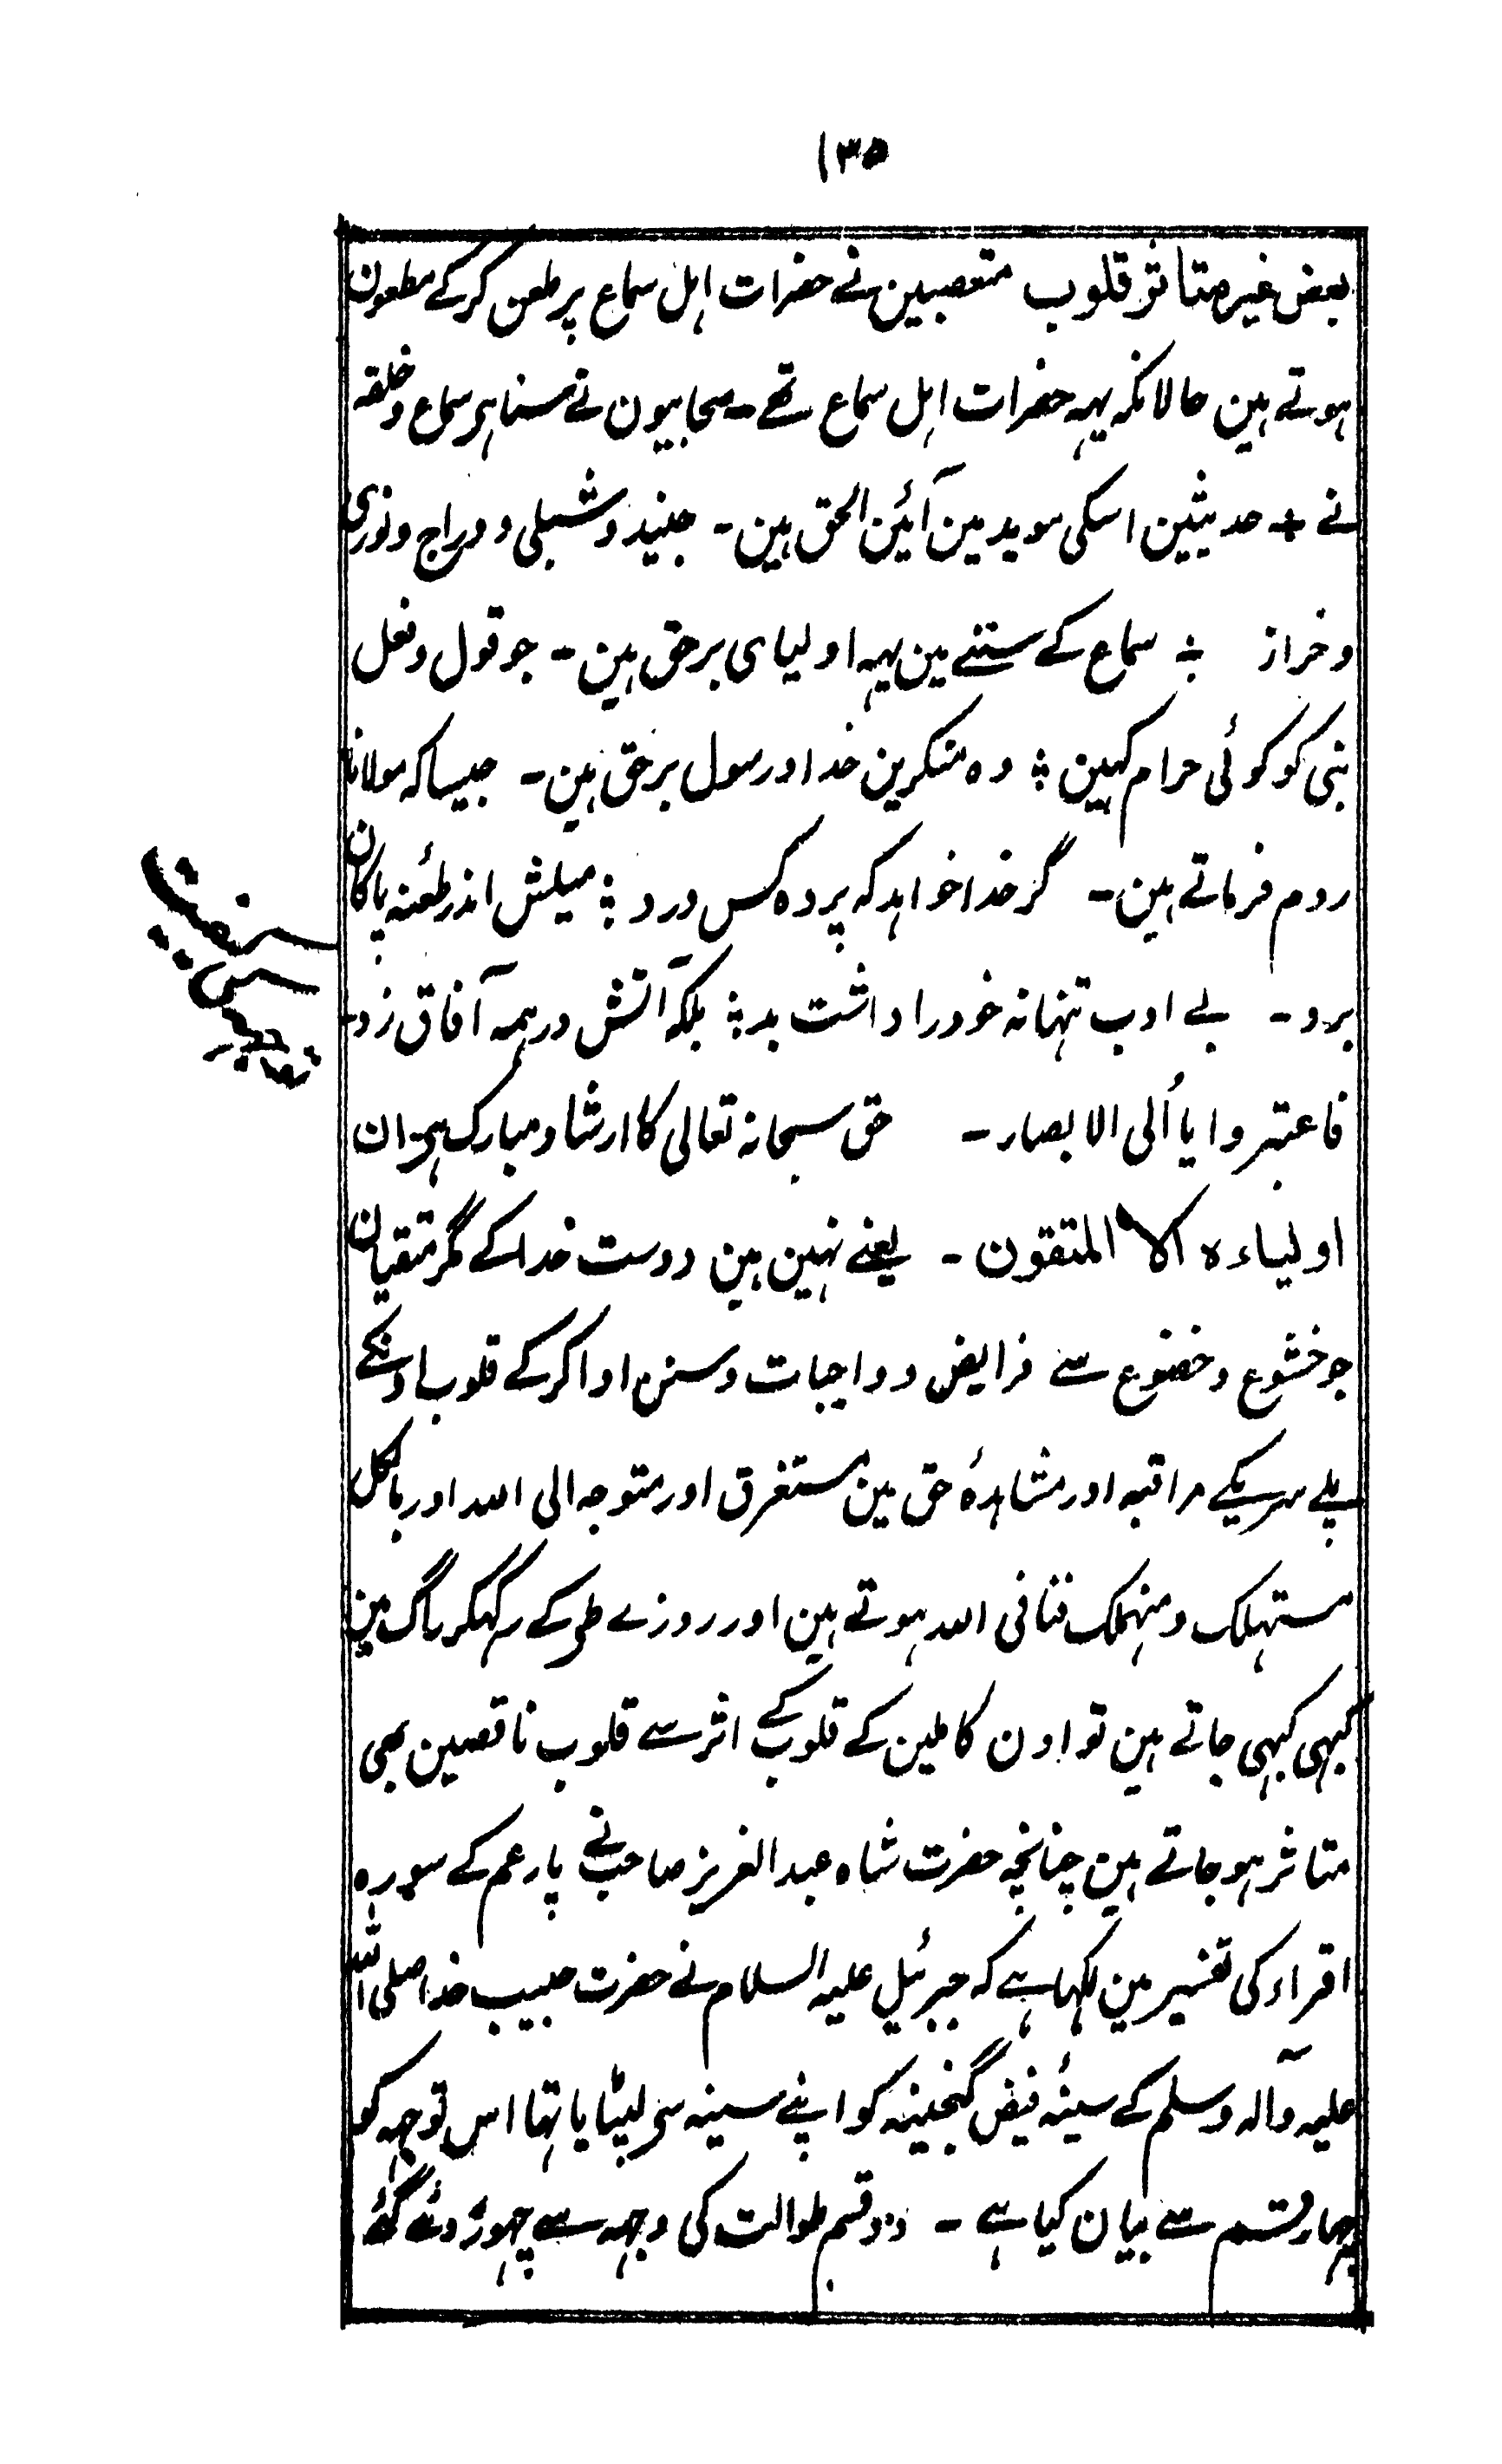 ۱۳۵
بعض غیر متاثر قلوب متعصبین نے حضرات اہل سماع پر طعن کرکے مطعون
ہوتے ہین حالانکہ یہہ حضرات اہل سماع تھے۔ صحابیون نے سنا ہر سماع و خلفہ
نے + حدیثین اسکی موید مین آئین الحق ہین۔ جنید و شبلی و دراج و نوری
و خراز ؛ سماع کے سننے مین یہہ اولیای برحق ہین۔ جو قول و فعل
نبی کو کوئی حرام کہین ؛ وہ منکرین خدا ورسول برحق ہین۔ جیسا کہ مولانا
روم فرماتے ہین۔ گر خدا خواہد کہ پردہ کس درد ؛ میلش اندر طعنہ پاکان
برد۔ بے ادب تنہا نہ خود را داشت بد ؛ بلکہ آتش در ہمہ آفاق زد۔
فاعتبروا یا اُلی الابصار۔ حق سبحانہ تعالی کا ارشاد مبارک ہی ان
اولیاءہ الا المتقون۔ یعنے نہین ہین دوست خدا کے مگر متقیان
جو خشوع و خضوع سے فرایض و واجبات و سنن ادا کرکے قلوب اونکے
پلے سریکے مراقبہ اور مشاہدۂ حق مین مستغرق اور متوجہ الی اللہ اور بالکل
مستہلک و منہمک فنا فی اللہ ہوتے ہین اور روزے طی کے رکہکر راگ مین
کبہی کبہی جاتے ہین تو اون کاملین کے قلوب کے اثر سے قلوب ناقصین بھی
متاثر ہو جاتے ہین چنانچہ حضرت شاہ عبد العزیز صاحب نے پارعم کے سورہ
اقراء کی تفسیر مین لکہا ہے کہ جبرئیل علیہ السلام نے حضرت حبیب خدا صلی اللہ
علیہ وآلہ وسلم کے سینۂ فیض گنجینہ کو اپنے سینہ سی لپٹایا تہا اس توجہہ کو
چہار قسم سے بیان کیا ہے۔ دو قسم طوالت کی وجہہ سے چہوڑ دئے گئے